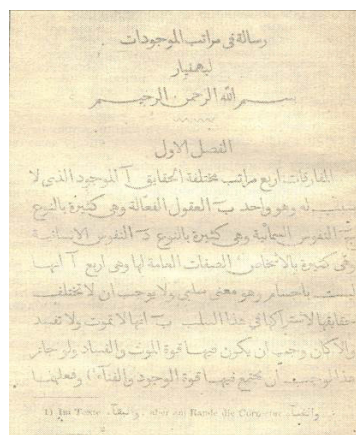 رسالة فى مراتب الموجودات
لبهمنيار
بسم الله الرحمن الرحيم
الفصل الاول
المفارقات اربع مراتب مختلفة الحقايق آ الموجود الذى لا
سبب له وهو واحد بَ العقول الفعالة وهى كثيرة بالنوع
جَ النفوس السمائية وهى كثيرة بالنوع دَ النفوس الانسانية
وهى كثيرة بالاشخاص الصفات العامة لها وهى اربع آ انها
ليست باجسام وهو معنى سلبى ولا يوجب ان لا تختلف
حقايقها لاشتراكها فى هذا السلب بَ انها لا تموت ولا تفسد
والا كان وجب ان يكون فيها قوة الموت والفساد ولو جاز
هذا لوجب ان يجتمع فيها قوة الوجود والفناء¹) وفعليهما
1) Im Texte والبقاء, aber am Rande die Correctur والفناء.